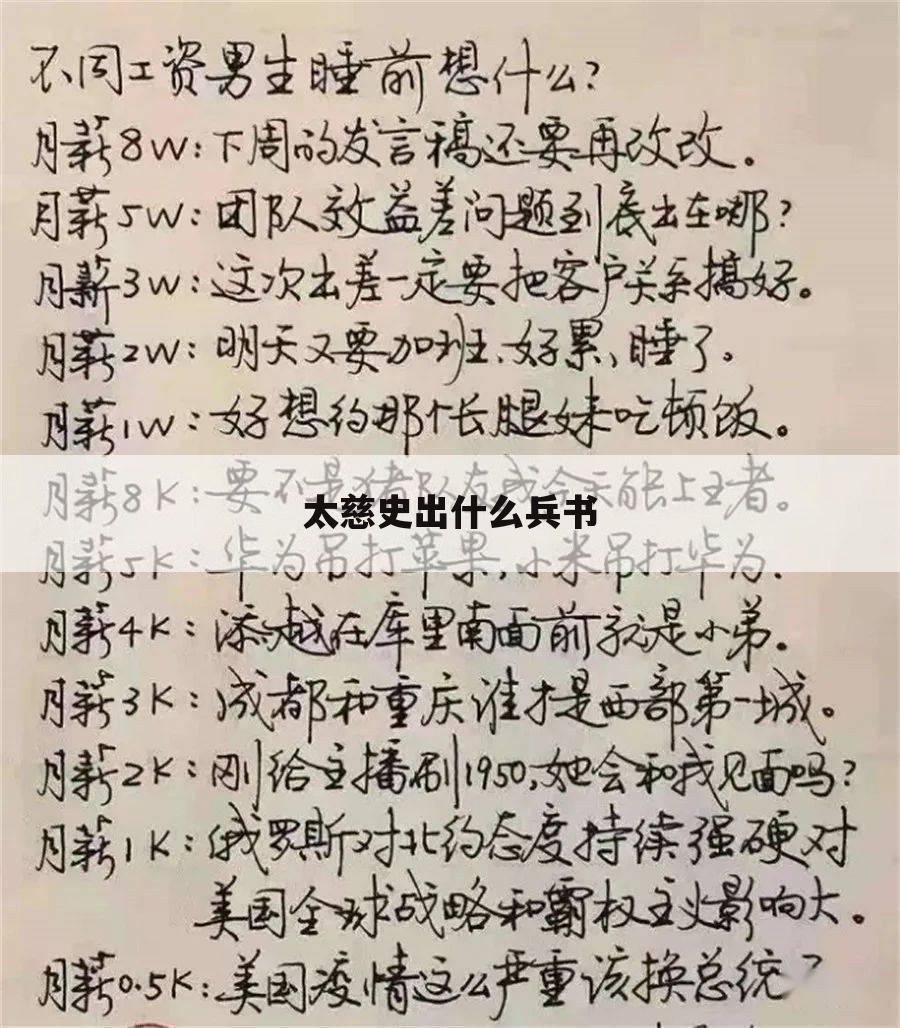 不同工资男生睡前想什么?
月薪8W:下周的发言稿还要再改改。
月薪5W:团队效益差问题到底出在哪?
月薪3W:这次出差一定要把客户关系搞好。
月薪2W:明天又要加班、好累、睡了。
月薪1W:好想约那个长腿妹吃顿饭。
月薪8K:要不是猪队友我今天能上王者。
太慈史出什么兵书
月薪5K:华为吊打苹果,小米吊打华为.
月薪4K:添越在库里南面前就是小弟。
月薪3K:成都和重庆谁才是西部第一城。
月薪2K:刚给主播刷1950,她会和我见面吗?
月薪1K:俄罗斯对北约态度持续强硬对
美国全球战略和霸权主义影响大。
月薪0.5K:美国疫情这么严重该换总统了